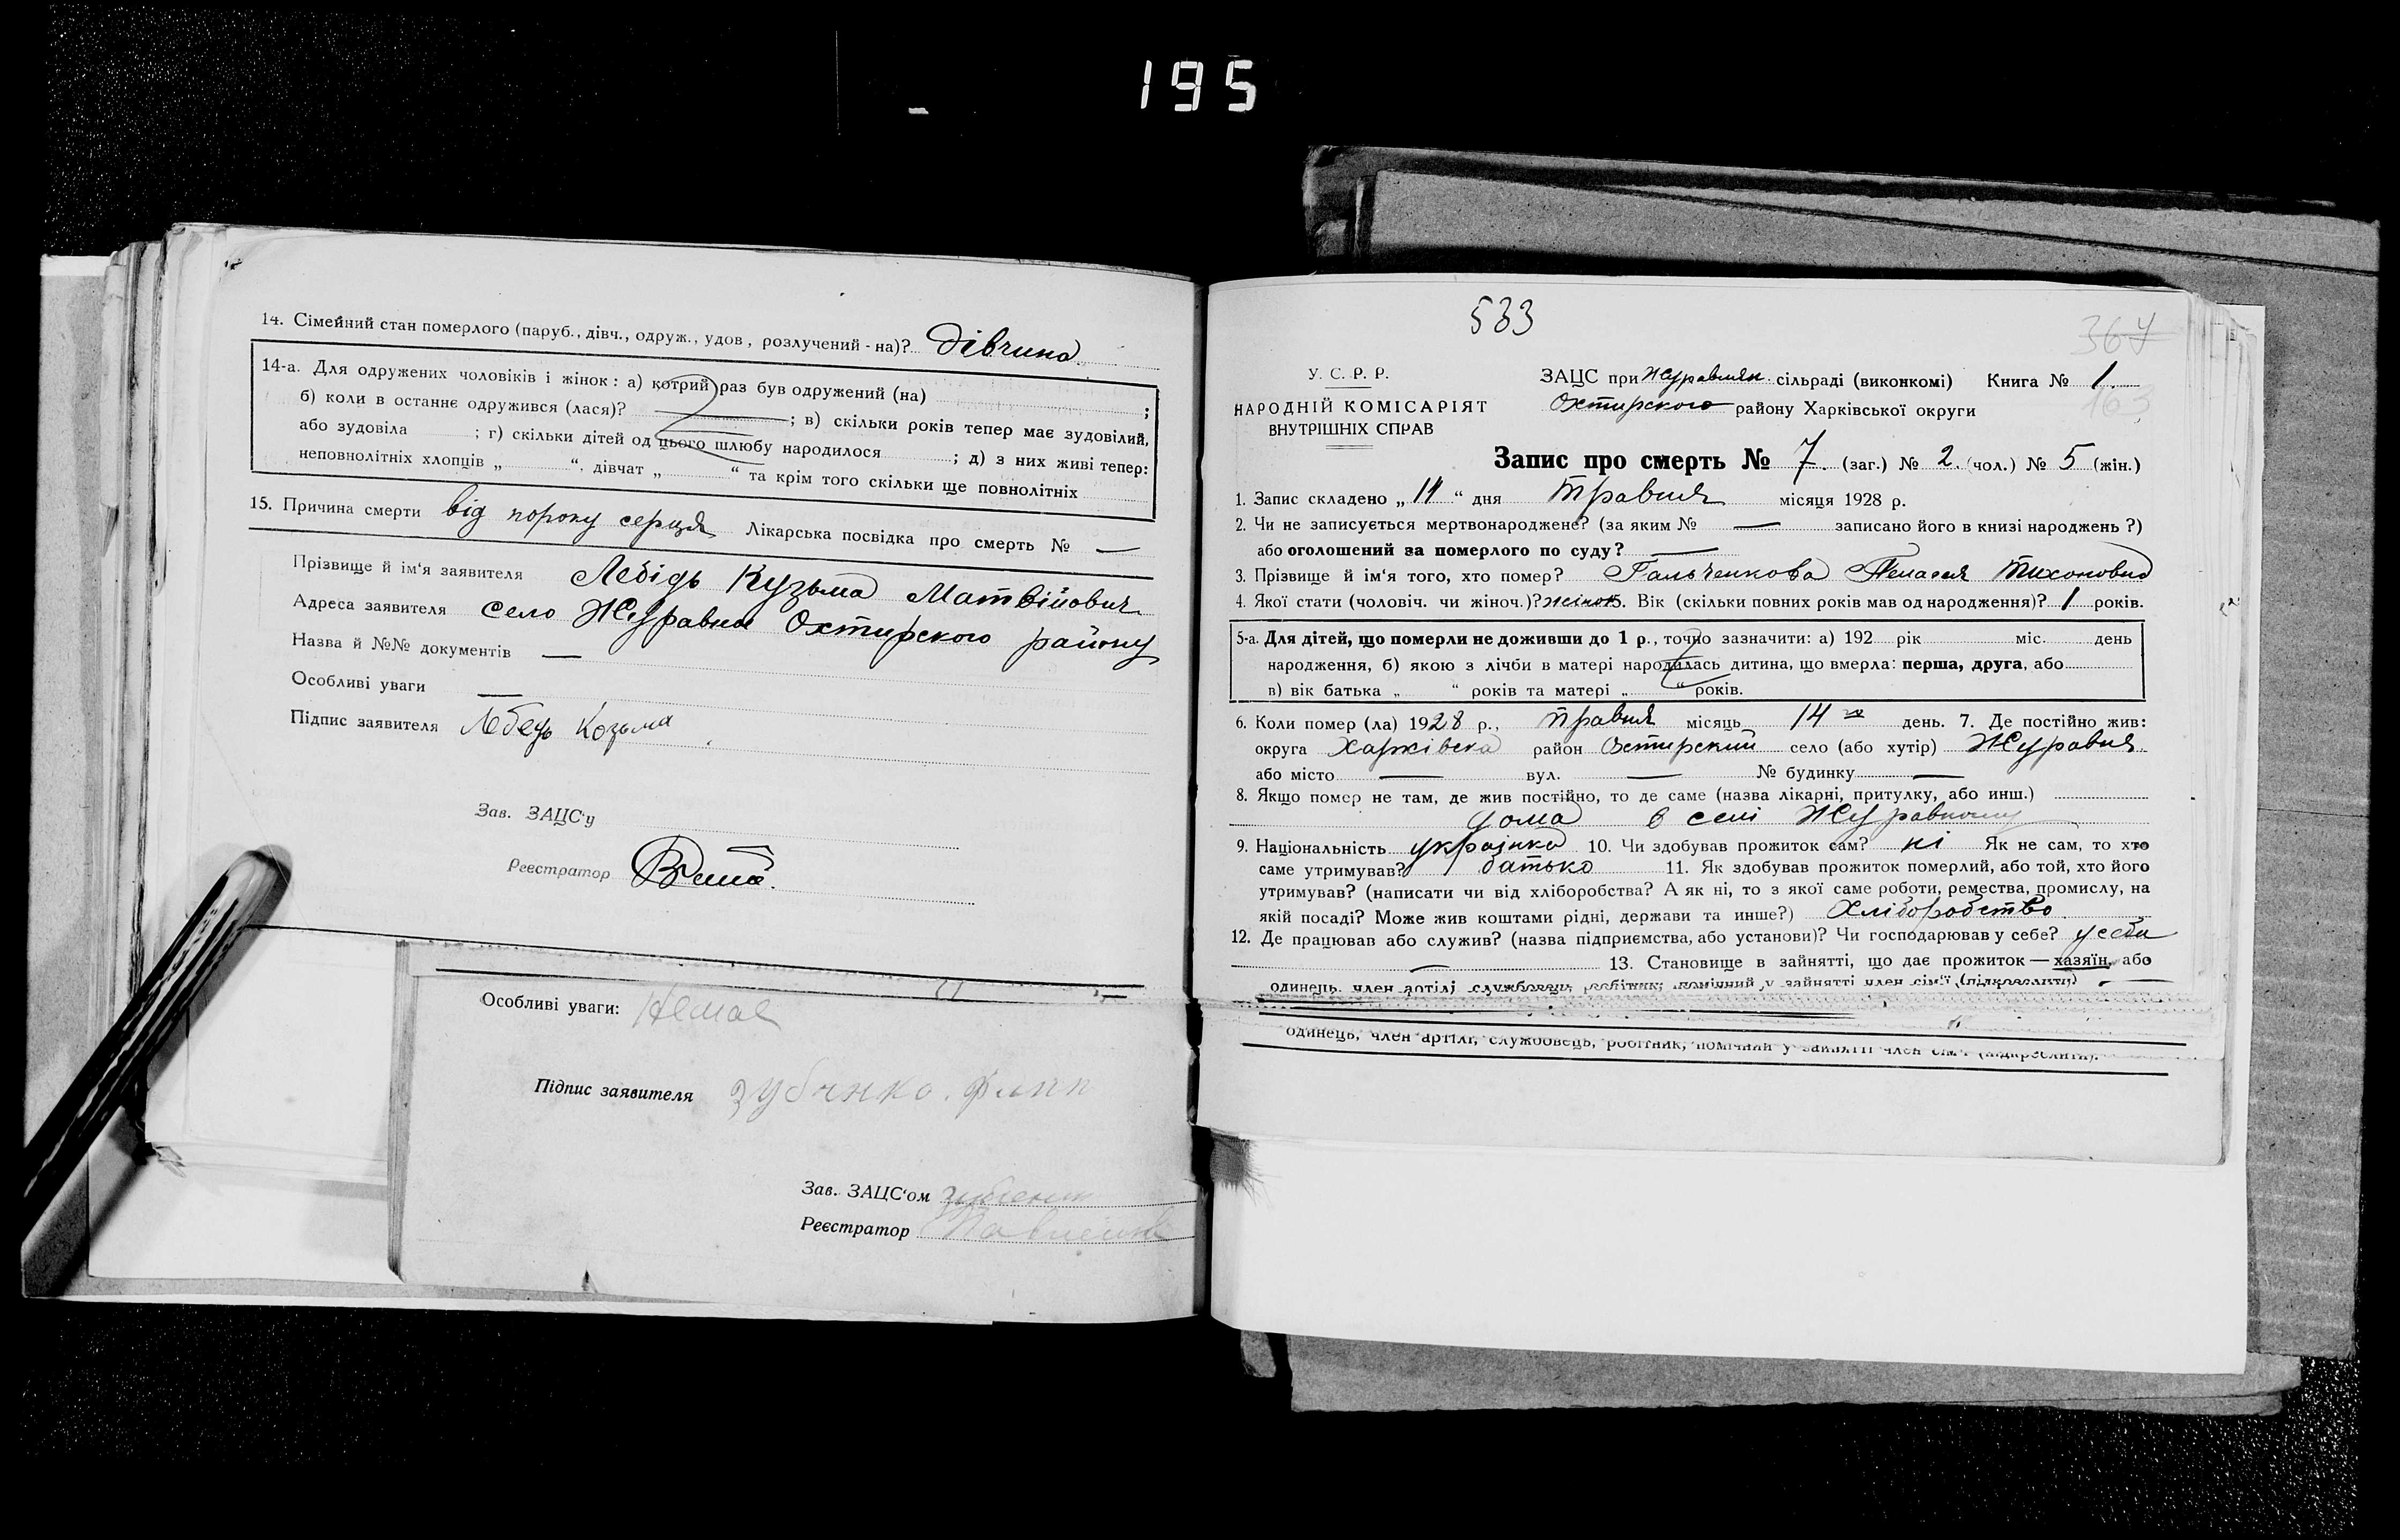 195
14. Сімейний стан померлого (паруб., дівч., одруж., удов, розлучений-на)? дівчина
14-а. Для одружених чоловіків і жінок: а) котрий раз був одружений (на) ;
б) коли в останнє одружився (лася)? ; в) скільки років тепер має зудовілий,
або зудовіла ; г) скільки дітей од цього шлюбу народилося ; д) з них живі тепер:
неповнолітніх хлопців „ “, дівчат „ “ та крім того скільки ще повнолітніх
15. Причина смерти від пороку серця Лікарська посвідка про смерть № —
Прізвище й ім‘я заявителя Лебідь Кузьма Матвійович
Адреса заявителя село Журавне Охтирского району
Назва й №№ документів —
Особливі уваги —
Підпис заявителя Лебедь Козьма
Зав. ЗАЦС‘у
Реєстратор
Особливі уваги: Немає
Підпис заявителя
Зав. ЗАЦС‘ом
Реєстратор
533
367
163
У. С. Р. Р.
НАРОДНІЙ КОМІСАРІЯТ
ВНУТРІШНІХ СПРАВ
ЗАЦС при Журавнян сільраді (виконкомі) Книга № 1.
Охтирского району Харківської округи
Запис про смерть № 7. (заг.) № 2. (чол.) № 5 (жін.)
1. Запис складено „ 14 “ дня Травня місяця 1928 р.
2. Чи не записується мертвонароджене? (за яким № — записано його в книзі народжень?)
або оголошений за померлого по суду? —
3. Прізвище й ім‘я того, хто помер? Гальченкова Пелагея Тихоновна
4. Якої стати (чоловіч. чи жіноч.)? жіноч 5. Вік (скільки повних років мав од народження)? 1 років.
5-а. Для дітей, що померли не доживши до 1 р., точно зазначити: а) 192 рік міс. день
народження, б) якою з лічби в матері народилась дитина, що вмерла: перша, друга, або
в) вік батька „ “ років та матері „ “ років.
6. Коли помер (ла) 1928 р., травня місяць 14 го день. 7. Де постійно жив:
округа Харківска район Охтирский село (або хутір) Журавня
або місто — вул. — № будинку —
8. Якщо помер не там, де жив постійно, то де саме (назва лікарні, притулку, або инш.)
дома в селі Журавному
9. Національність українка 10. Чи здобував прожиток сам? ні Як не сам, то хто
саме утримував? батько 11. Як здобував прожиток померлий, або той, хто його
утримував? (написати чи від хліборобства? А як ні, то з якої саме роботи, ремества, промислу, на
якій посаді? Може жив коштами рідні, держави та инше?) Хліборобство
12. Де працював або служив? (назва підприємства, або установи)? Чи господарював у себе? у себе
— 13. Становище в зайнятті, що дає прожиток — хазяїн, або
одинець, член артілі, службовець, робітник, помічний у зайнятті член сім‘ї (підкреслити) —
одинець, член артілі, службовець, робітник, помічний у зайнятті член сім‘ї (підкреслити).